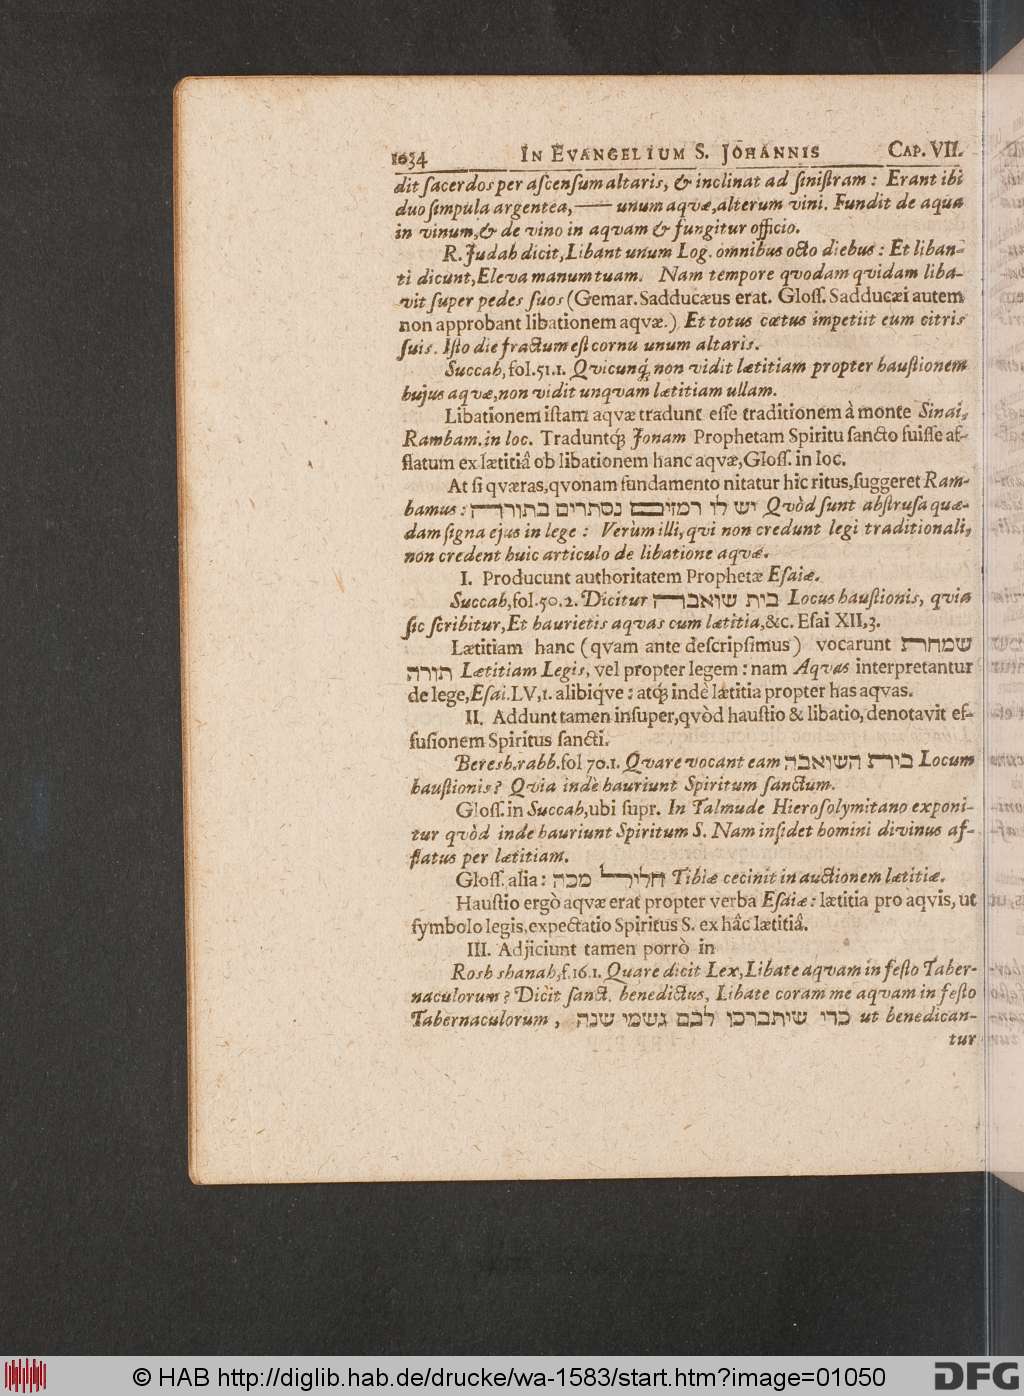 1034 IN EVANGELIUM S. JOHANNIS CAP. VII.
dit sacerdos per ascensum altaris, & inclinat ad sinistram: Erant ibi
duo simpula argentea, —— unum aqvæ, alterum vini. Fundit de aqua
in vinum, & de vino in aqvam & fungitur officio.
R. Judah dicit, Libant unum Log. omnibus octo diebus: Et liban-
ti dicunt, Eleva manum tuam. Nam tempore qvodam qvidam liba-
vit super pedes suos (Gemar. Sadducæus erat. Gloss. Sadducæi autem
non approbant libationem aqvæ.) Et totus cœtus impetiit eum citris
suis. Isto die fractum est cornu unum altaris.
Succah, fol. 51. 1. Qvicunq; non vidit lætitiam propter haustionem
hujus aqvæ, non vidit unqvam lætitiam ullam.
Libationem istam aqvæ tradunt esse traditionem à monte Sinai,
Rambam. in loc. Traduntq; Jonam Prophetam Spiritu sancto fuisse af-
flatum ex lætitiâ ob libationem hanc aqvæ, Gloss. in loc.
At si qværas, qvonam fundamento nitatur hic ritus, suggeret Ram-
bamus: יש לו רמזים נסתרים בתורה Qvòd sunt abstrusa quæ-
dam signa ejus in lege: Verùm illi, qvi non credunt legi traditionali,
non credent huic articulo de libatione aqvæ.
I. Producunt authoritatem Prophetæ Esaiæ.
Succah, fol. 50. 2. Dicitur בית שואבה Locus haustionis, qvia
sic scribitur, Et haurietis aqvas cum lætitia, &c. Esai XII, 3.
Lætitiam hanc (qvam ante descripsimus) vocarunt שמחת
תורה Lætitiam Legis, vel propter legem: nam Aqvas interpretantur
de lege, Esai. LV, 1. alibiqve: atq; indè lætitia propter has aqvas.
II. Addunt tamen insuper, qvòd haustio & libatio, denotavit ef-
fusionem Spiritus sancti.
Beresh. rabb. fol 70. 1. Qvare vocant eam בית השואבה Locum
haustionis? Qvia indè hauriunt Spiritum sanctum.
Gloss. in Succah, ubi supr. In Talmude Hierosolymitano exponi-
tur qvòd inde hauriunt Spiritum S. Nam insidet homini divinus af-
flatus per lætitiam.
Gloss. alia: חליל מכה Tibiæ cecinit in auctionem lætitiæ.
Haustio ergò aqvæ erat propter verba Esaiæ: lætitia pro aqvis, ut
symbolo legis, expectatio Spiritus S. ex hâc lætitiâ.
III. Adjiciunt tamen porrò in
Rosh shanah, f. 16. 1. Quare dicit Lex, Libate aqvam in festo Taber-
naculorum? Dicit sanct. benedictus, Libate coram me aqvam in festo
Tabernaculorum, כדי שיתברכו לכם גשמי שנה ut benedican-
tur
© HAB http://diglib.hab.de/drucke/wa-1583/start.htm?image=01050
DFG